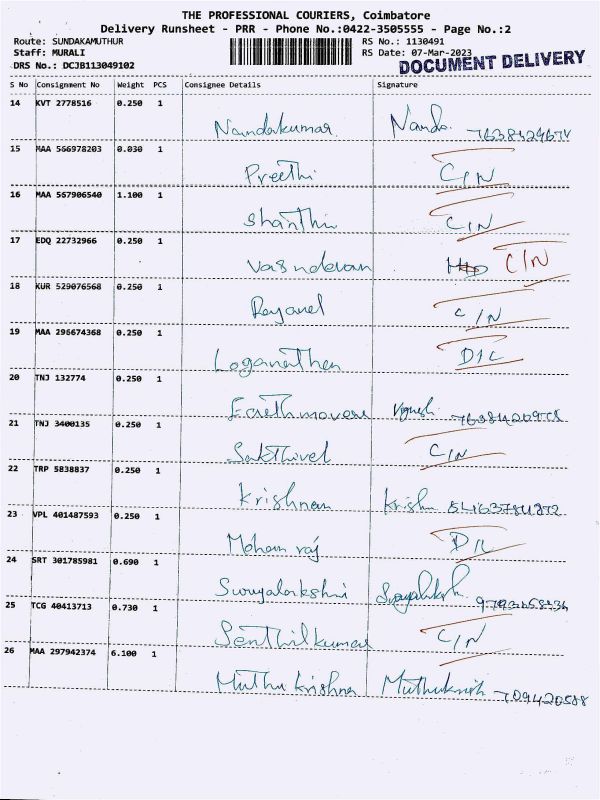 THE PROFESSIONAL COURIERS, Coimbatore
Delivery Runsheet - PRR - Phone No.:0422-3505555 - Page No.:2
Route: SUNDAKAMUTHUR RS No.: 1130491
Staff: MURALI RS Date: 07-Mar-2023
DRS No.: DCJB113049102 DOCUMENT DELIVERY
S No Consignment No Weight PCS Consignee Details Signature
14 KVT 2778516 0.250 1
Nandakumar Nanda
15 MAA 566978203 0.030 1
Preethi C/N
16 MAA 567906540 1.100 1
Shanthi C/N
17 EDQ 22732966 0.250 1
Vasudevan C/N
18 KUR 529076568 0.250 1
C/N
19 MAA 296674368 0.250 1
Loganathan D/L
20 TNJ 132774 0.250 1
Earthmovers Vignesh
21 TNJ 3400135 0.250 1
Sakthivel C/N
22 TRP 5838837 0.250 1
Krishnan Krishn
23 VPL 401487593 0.250 1
Mohan raj D/L
24 SRT 301785981 0.690 1
Suryalakshmi
25 TCG 40413713 0.730 1
Senthilkumar C/N
26 MAA 297942374 6.100 1
Muthu Krishna Muthukrish 709420588